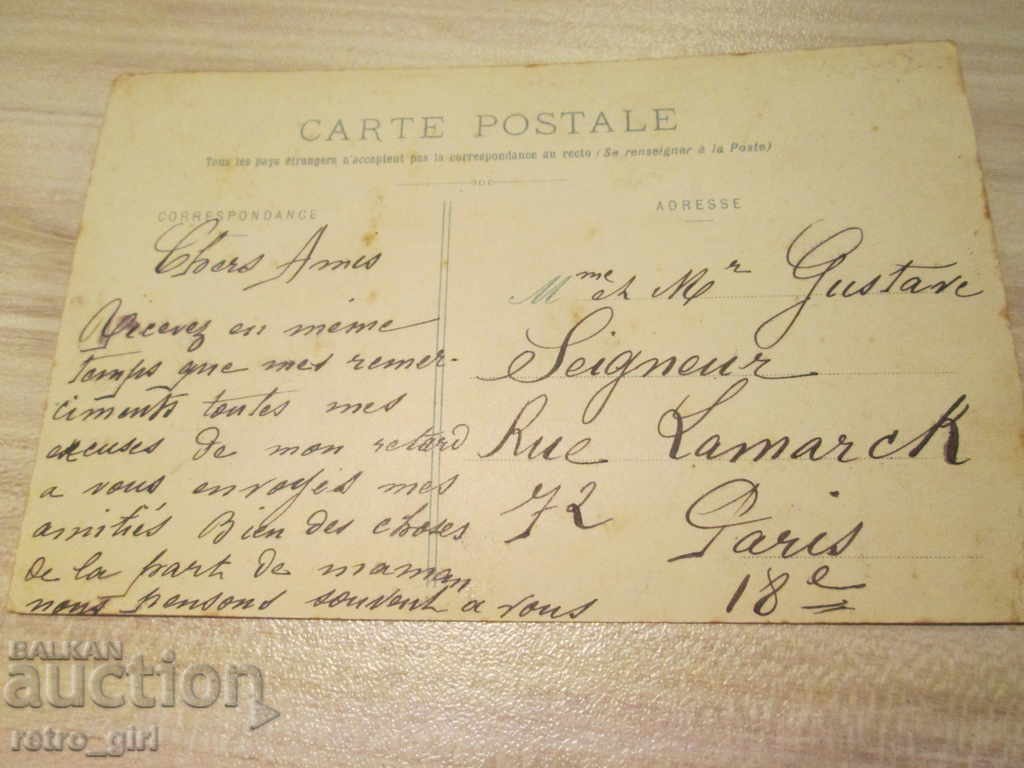 CARTE POSTALE
Tous les pays étrangers n'acceptent pas la correspondance au recto (Se renseigner à la Poste)
CORRESPONDANCE
Chers Amis
Recevez en même
temps que mes remer-
ciments toutes mes
excuses de mon retard
a vous envoyés mes
amitiés Bien des choses
de la part de maman
nous pensons souvent a vous
ADRESSE
Mme et Mr Gustave
Seigneur
Rue Lamarck
72 Paris
18e
BALKAN
auction
retro_girl